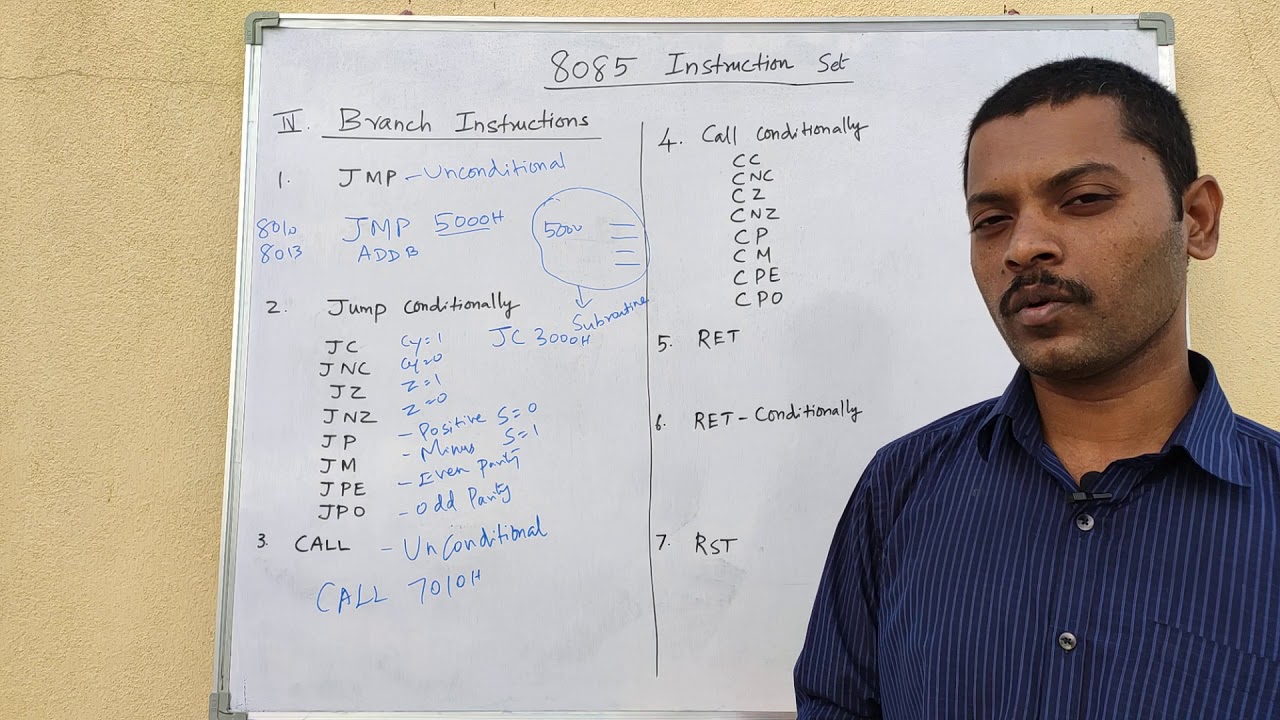 8085 Instruction Set
IV. Branch Instructions
1. JMP - Unconditional
8010 JMP 5000H
8013 ADD B
5000
Subroutine
2. Jump conditionally
JC 3000H
JC Cy=1
JNC Cy=0
JZ Z=1
JNZ Z=0
JP - Positive S=0
JM - Minus S=1
JPE - Even parity
JPO - Odd Parity
3. CALL - Unconditional
CALL 7010H
4. Call conditionally
CC
CNC
CZ
CNZ
CP
CM
CPE
CPO
5. RET
6. RET - Conditionally
7. RST